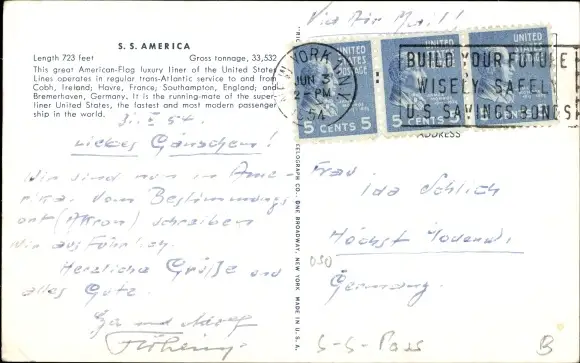 Via Air Mail!
S. S. AMERICA
Length 723 feet Gross tonnage, 33,532
This great American-Flag luxury liner of the United States
Lines operates in regular trans-Atlantic service to and from
Cobh, Ireland; Havre, France; Southampton, England; and
Bremerhaven, Germany. It is the running-mate of the super-
liner United States, the fastest and most modern passenger
ship in the world.
54.
Liebes Gänschen!
Wir sind nun in Ame-
rika. Vom Bestimmungs
ort (Akron) schreiben
wir ausführlich.
Herzliche Grüße und
alles Gute.
und
UNITED STATES POSTAGE
5 CENTS 5
UNITED STATES
5 CENTS 5
UNITED STATES
NEW YORK
JUN 3
2-PM
1954
BUILD YOUR FUTURE
WISELY, SAFELY
U.S. SAVINGS BONDS
ADDRESS
CO., ONE BROADWAY, NEW YORK. MADE IN U.S.A.
Frau
Ida
Höchst
Germany.
050
S-S-Pass
B